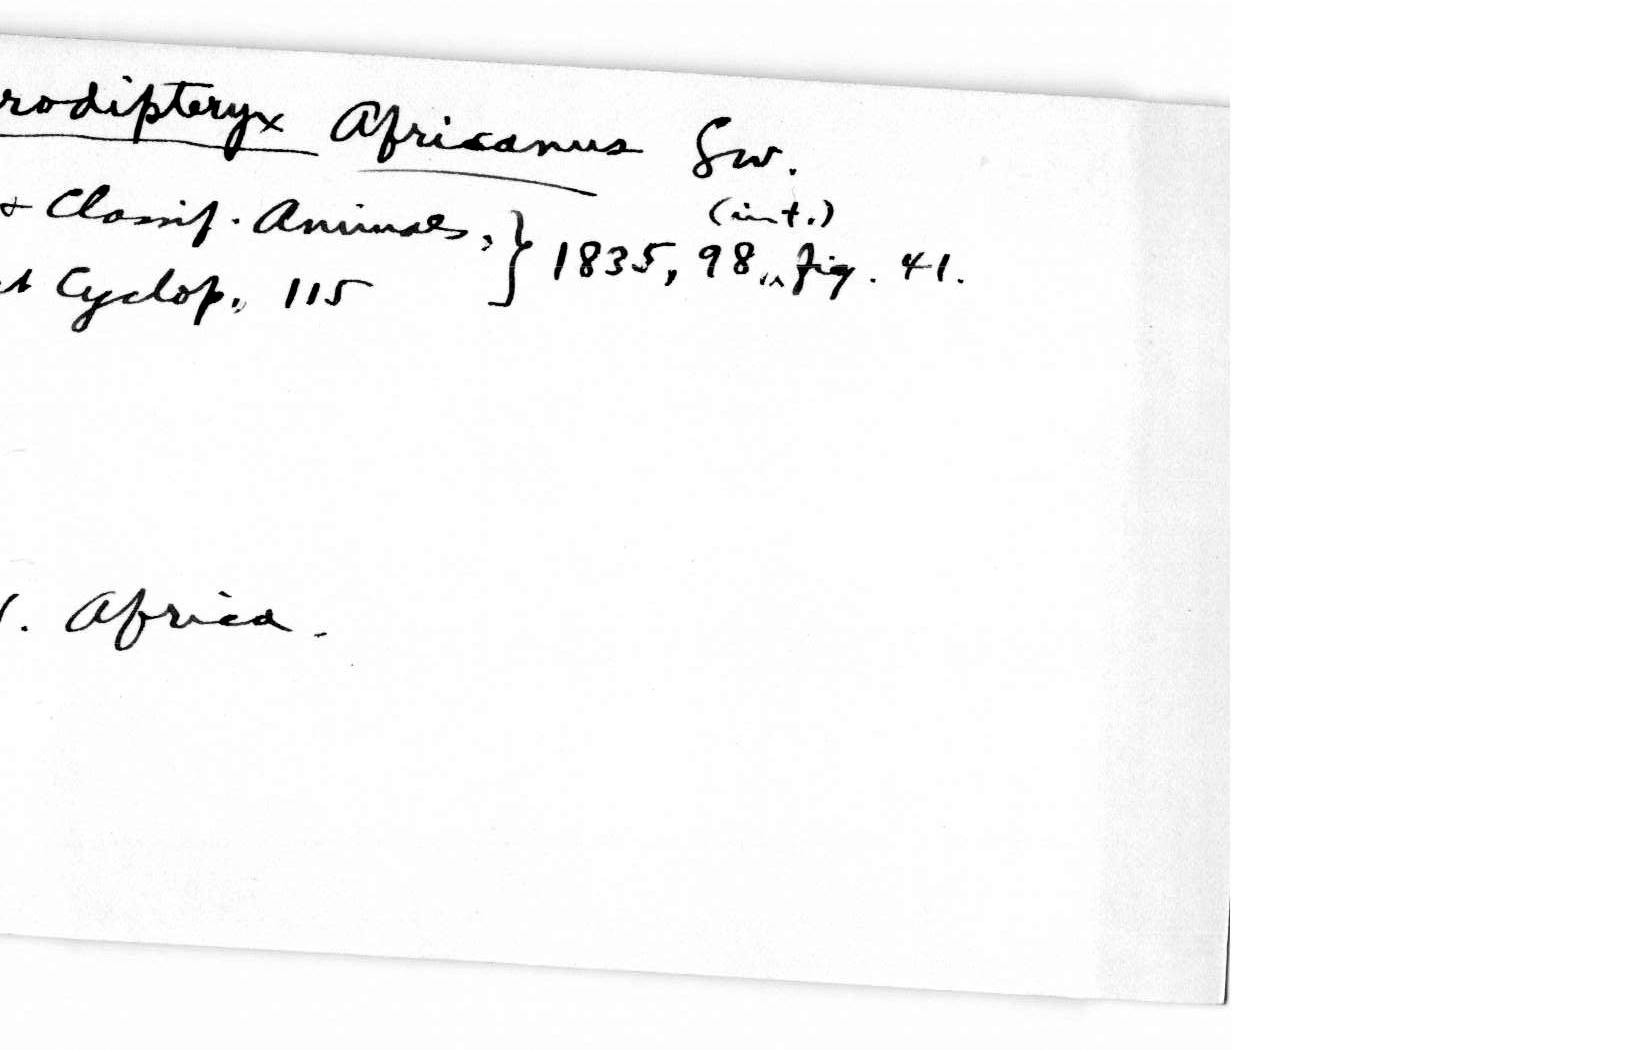 rodipteryx Africanus Sw.
+ Classif. Animals, } 1835, 98, fig. 41.
(int.)
Cyclop., 115
. Africa.